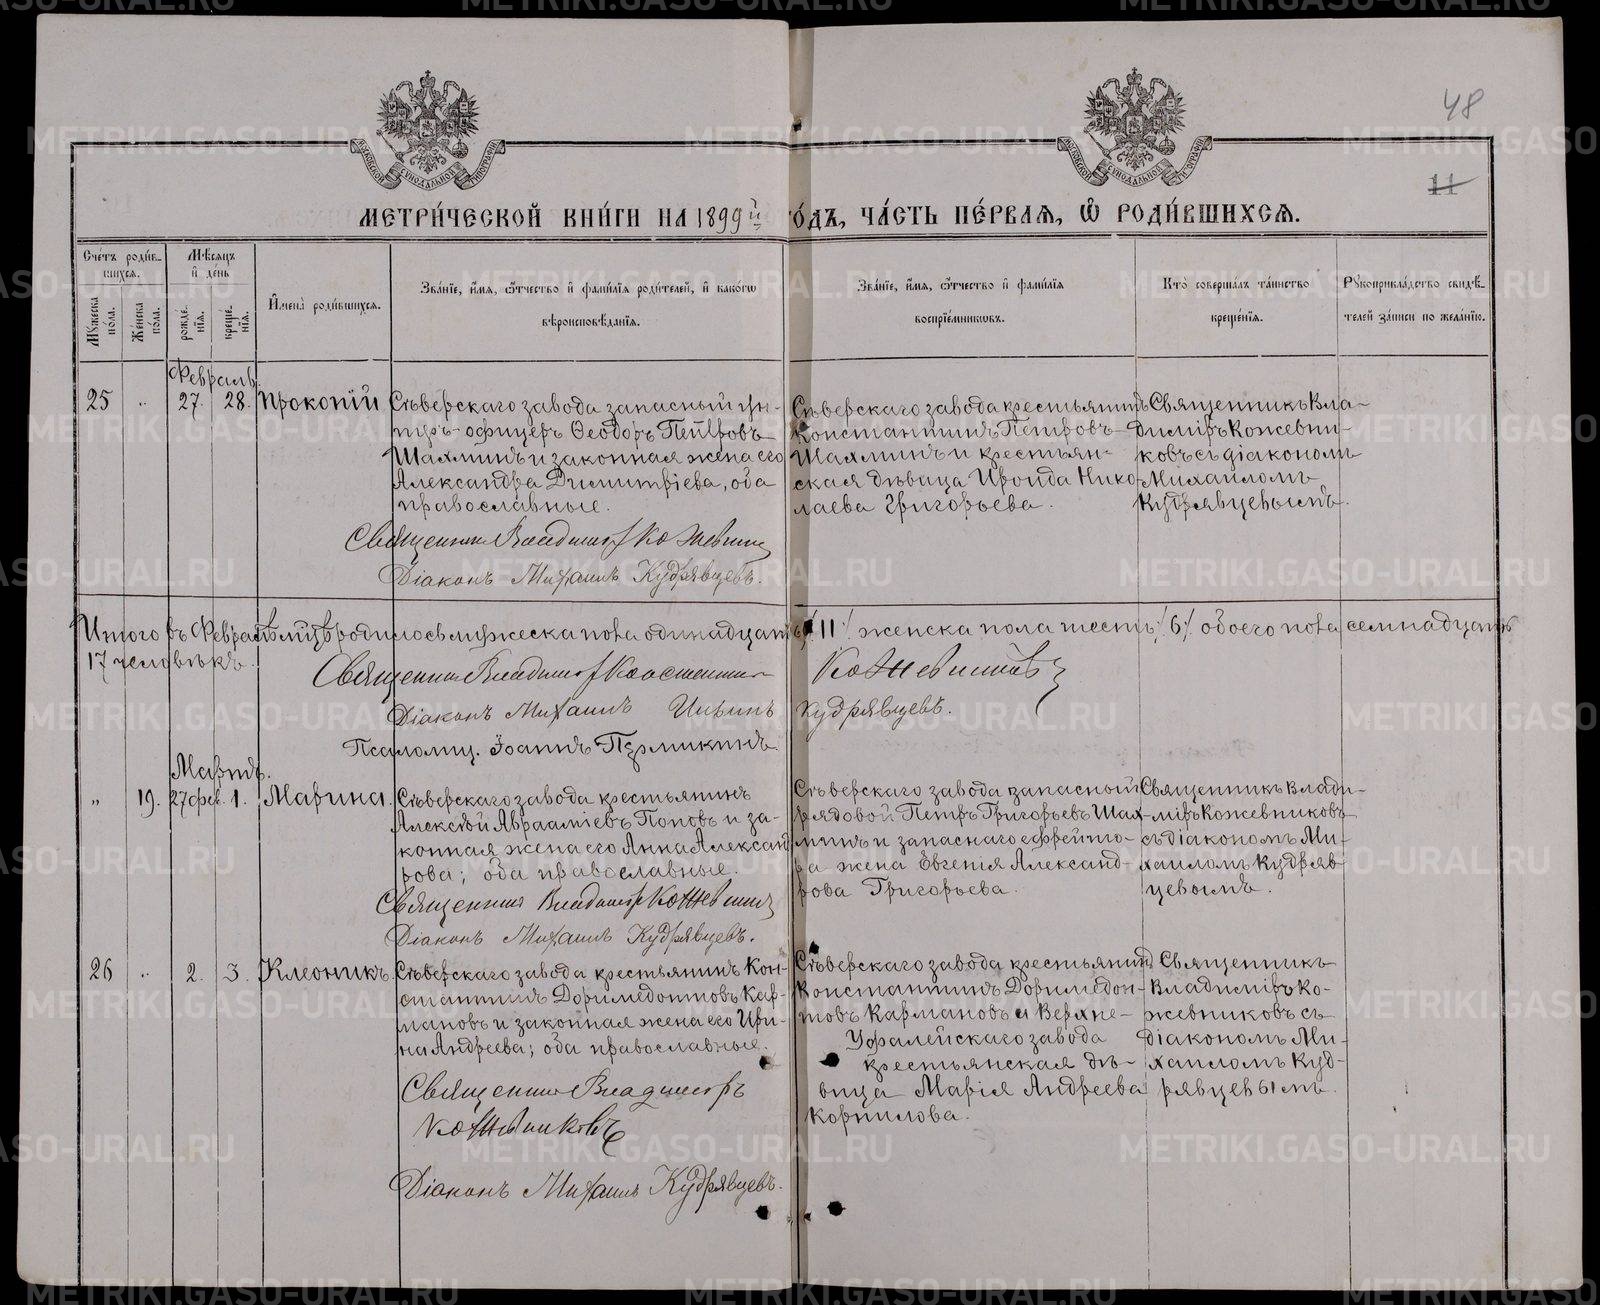 48
11
МЕТРИ́ЧЕСКОЙ КНИ́ГИ НА 1899й ГО́ДЪ, ЧА́СТЬ ПЕ́РВАЯ, Ѡ РОДИ́ВШИХСЯ.
Сче́тъ роди́в-
шихся.
Мꙋ́жеска по́ла.
Же́нска по́ла.
Мѣ́сяцъ
и҆ де́нь
рожде́нїя.
креще́нїя.
И҆мена̀ роди́вшихся.
Зва́нїе, и҆́мя, ѻ҆́тчество и҆ фами́лїя роди́телей, и҆ како́гѡ
вѣроисповѣ́данїя.
Зва́нїе, и҆́мя, ѻ҆́тчество и҆ фами́лїя
воспрїе́мниковъ.
Кто̀ соверша́лъ та́инство
креще́нїя.
Рꙋкоприкла́дство свидѣ́-
телей за́писи по жела́нїю.
Февраль.
25 „ 27. 28. Прокопій
Сѣверскаго завода запасный ун-
теръ-офицеръ Ѳеодоръ Петровъ
Шахминъ и законная жена его
Александра Димитріева, оба
православные.
Священникъ Владиміръ Кожевник
Діаконъ Михаилъ Кудрявцевъ.
Сѣверскаго завода крестьянинъ
Константинъ Петровъ
Шахминъ и крестьян-
ская дѣвица Ироида Нико-
лаева Григорьева.
Священникъ Вла-
диміръ Кожевни-
ковъ съ діакономъ
Михаиломъ
Кудрявцевымъ.
Итого въ Февралѣ м-цѣ родилось мужеска пола одинадцать /11/. женска пола шесть /6/. обоего пола семнадцать
17 человѣкъ.
Священник Владиміръ Константин Кожевниковъ
Діаконъ Михаилъ Кудрявцевъ.
Псаломщ. Іоаннъ Пермикинъ
Мартъ.
„ 19. 27 фев. 1. Марина.
Сѣверскаго завода крестьянинъ
Алексѣй Авраамiевъ Поповъ и за-
конная жена его Анна Александ
рова; оба православные.
Священник Владиміръ Кожевник
Діаконъ Михаилъ Кудрявцевъ.
Сѣверскаго завода запасный
рядовой Петръ Григорьевъ Шах-
минъ и запаснаго ефрейто-
ра жена Евгенія Александ-
рова Григорьева.
Священникъ Влади-
міръ Кожевниковъ
съ діакономъ Ми-
хаиломъ Кудряв
цевымъ.
26 „ 2. 3. Клеоникъ.
Сѣверскаго завода крестьянинъ Кон-
стантинъ Доримедонтовъ Кар-
мановъ и законная жена его Ири-
на Андреева; оба православные.
Священник Владиміръ
Кожевниковъ
Діаконъ Михаилъ Кудрявцевъ.
Сѣверскаго завода крестьянинъ
Константинъ Доримедон-
товъ Кармановъ и Верхне-
Уфалейскаго завода
крестьянская дѣ-
вица Марія Андреева
Корнилова.
Священникъ
Владиміръ Ко-
жевниковъ съ
діакономъ Ми-
хаиломъ Куд-
рявцевымъ.
METRIKI.GASO-URAL.RU